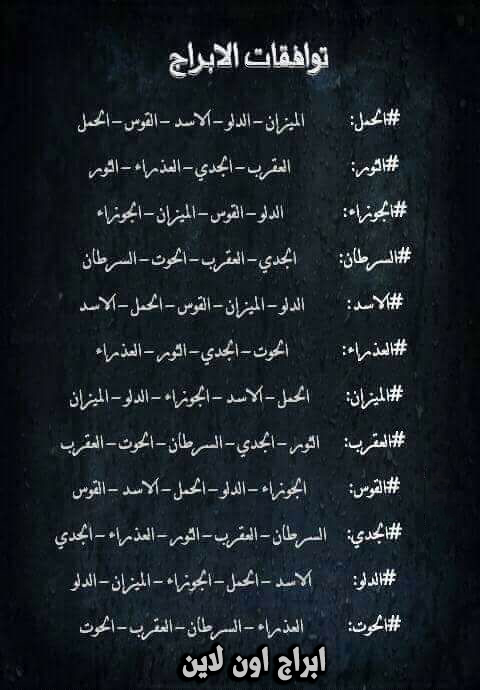 توافقات الابراج
#الحمل: الميزان-الدلو-الاسد-القوس-الحمل
#الثور: العقرب-الجدي-العذراء-الثور
#الجوزاء: الدلو-القوس-الميزان-الجوزاء
#السرطان: الجدي-العقرب-الحوت-السرطان
#الاسد: الدلو-الميزان-القوس-الحمل-الاسد
#العذراء: الحوت-الجدي-الثور-العذراء
#الميزان: الحمل-الاسد-الجوزاء-الدلو-الميزان
#العقرب: الثور-الجدي-السرطان-الحوت-العقرب
#القوس: الجوزاء-الدلو-الحمل-الاسد-القوس
#الجدي: السرطان-العقرب-الثور-العذراء-الجدي
#الدلو: الاسد-الحمل-الجوزاء-الميزان-الدلو
#الحوت: العذراء-السرطان-العقرب-الحوت
ابراج اون لاين